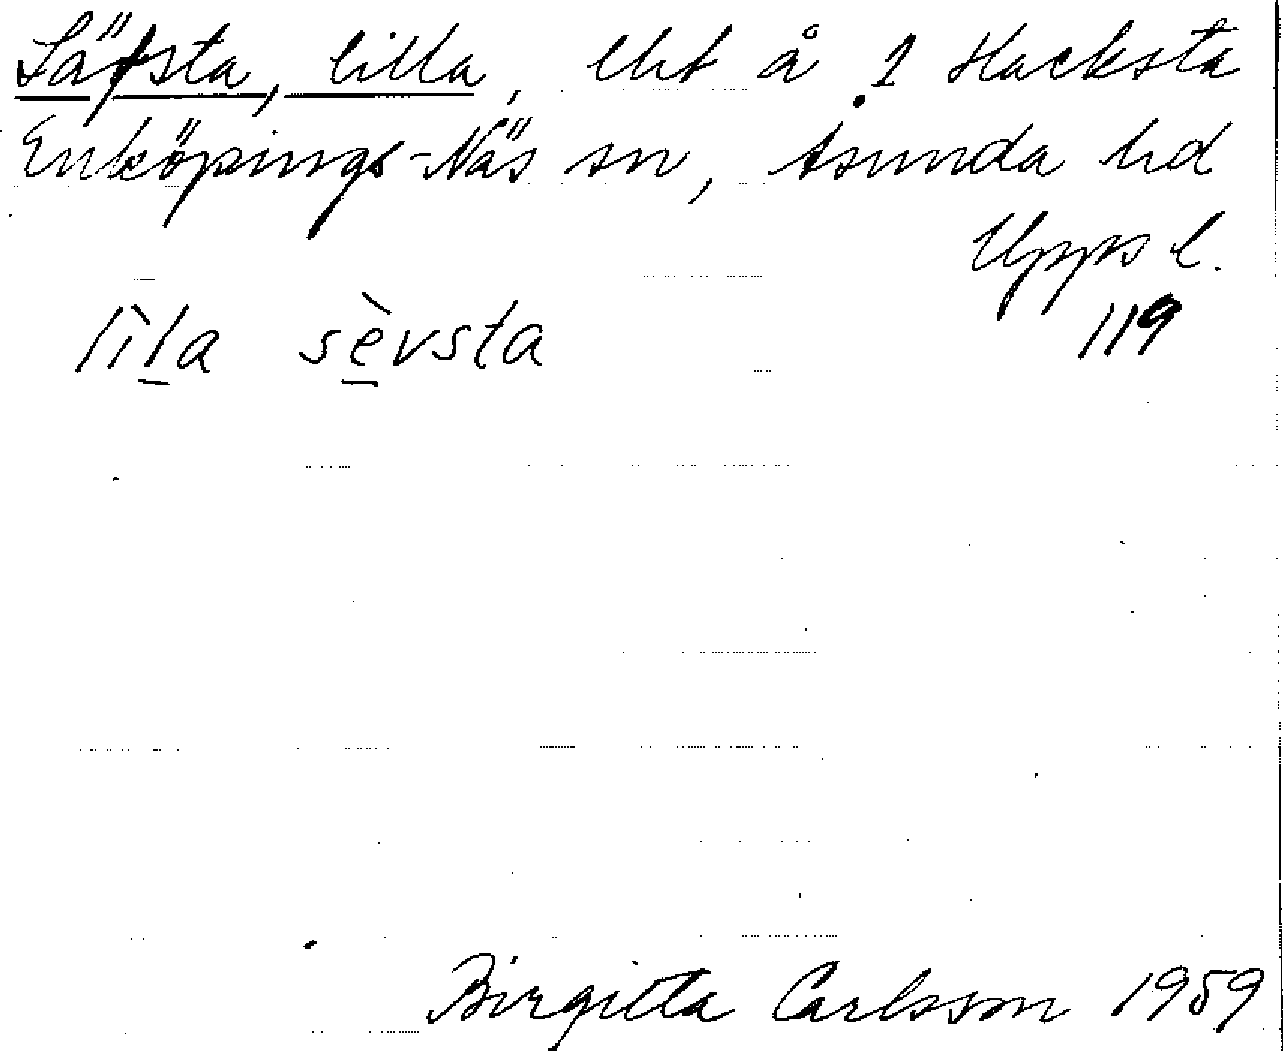 Säfsta, lilla, lht å 1 Hacksta
Enköpings-Näs sn, Åsunda hd
Upps l.
lìla sèvsta 119
Birgitta Carlsson 1959